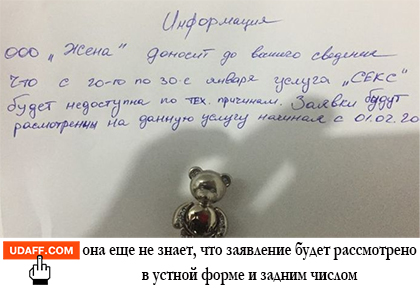 Информация
ООО „Жена" доносит до вашего сведение
Что с 20-го по 30-е января услуга „СЕКС"
будет недоступна по тех. причинам. Заявки будут
расмотренны на данную услугу начиная с 01.02.20
UDAFF.COM
она еще не знает, что заявление будет рассмотрено
в устной форме и задним числом